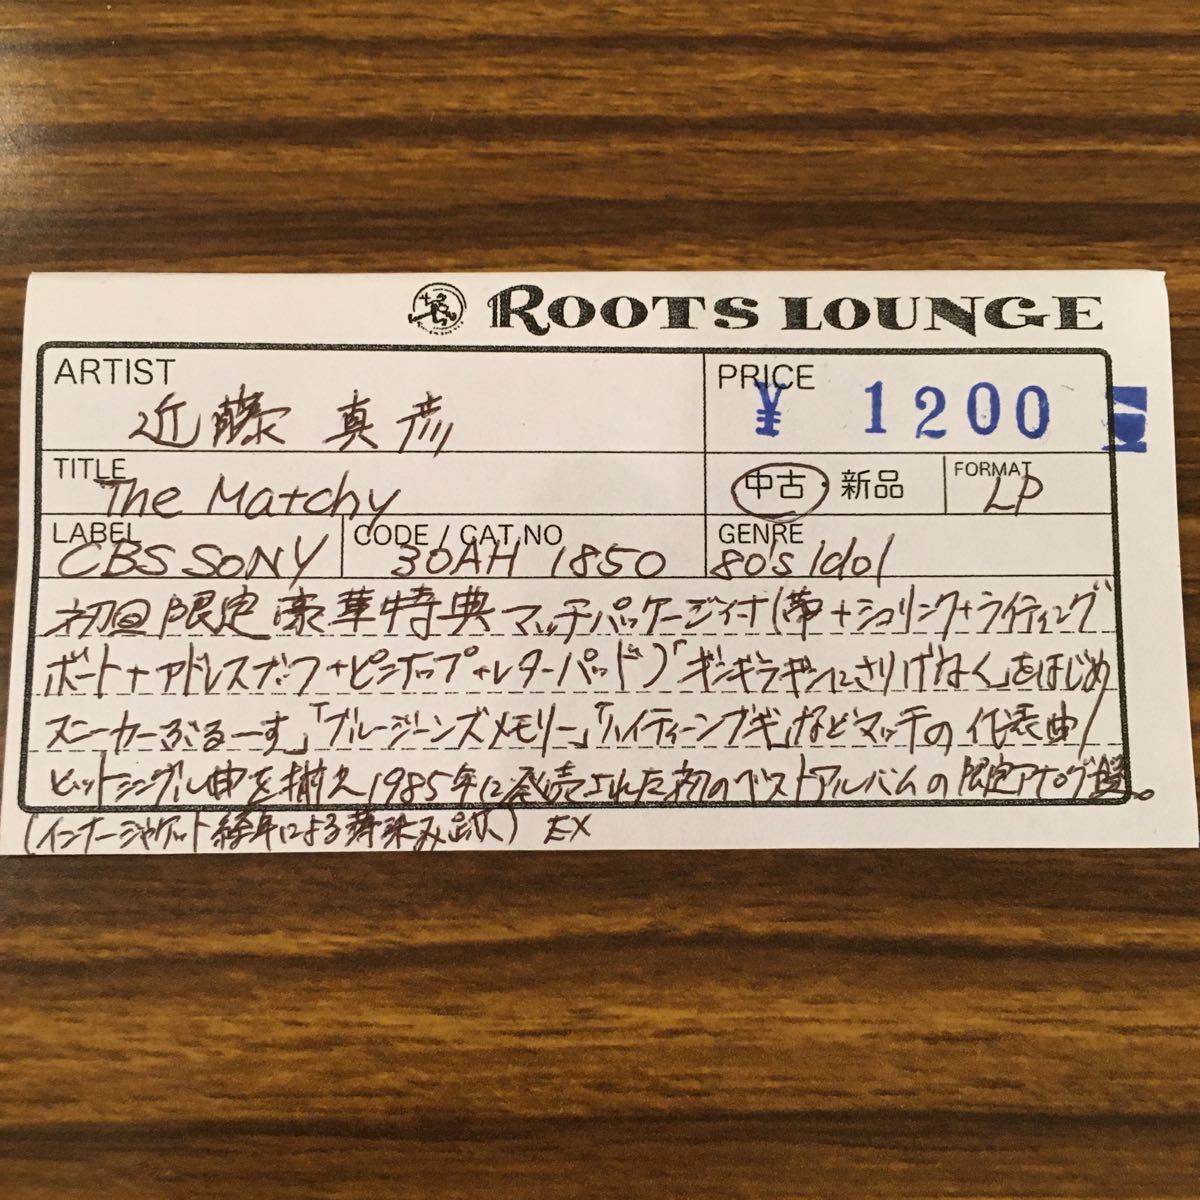 ROOTS LOUNGE
ARTIST
近藤 真彦
PRICE
¥ 1200
TITLE
The Matchy
中古 新品
FORMAT
LP
LABEL
CBS SONY
CODE / CAT.NO
30AH 1850
GENRE
80's Idol
初回限定豪華特典マッチパッケージ付(帯+シュリンク+ライティング
ボート+アドレスブック+ピンナップ+レターパッド)「ギンギラギンにさりげなく」をはじめ
スニーカーぶるーす」「ブルージーンズメモリー」「ハイティーンブギ」などマッチの代表曲/
ヒットシングル曲を揃え1985年に発売された初のベストアルバムの限定アナログ盤。
(インナージャケット経年による薄染み跡) EX